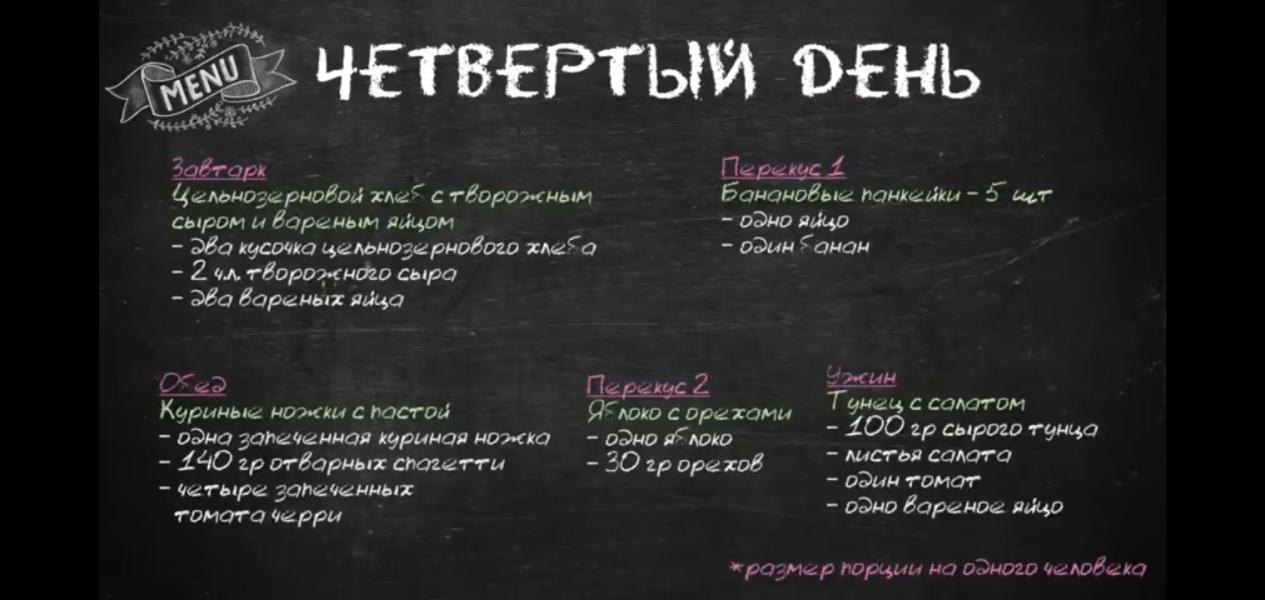 MENU
ЧЕТВЕРТЫЙ ДЕНЬ
Завтарк
Цельнозерновой хлеб с творожным
сыром и вареным яйцом
- два кусочка цельнозернового хлеба
- 2 ч.л. творожного сыра
- два вареных яйца
Перекус 1
Банановые панкейки - 5 шт
- одно яйцо
- один банан
Обед
Куриные ножки с пастой
- одна запеченная куриная ножка
- 140 гр отварных спагетти
- четыре запеченных
томата черри
Перекус 2
Яблоко с орехами
- одно яблоко
- 30 гр орехов
Ужин
Тунец с салатом
- 100 гр сырого тунца
- листья салата
- один томат
- одно вареное яйцо
*размер порции на одного человека